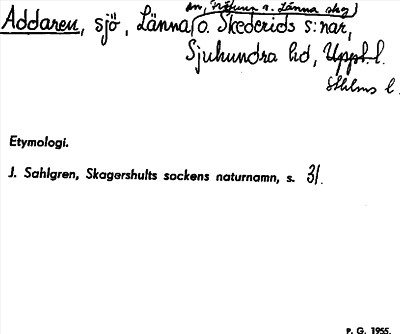 Addaren, sjö, Länna, o. Skederids s:nar,
Sjuhundra hd, Uppl. l.
Sthlms l.
Etymologi.
J. Sahlgren, Skagershults sockens naturnamn, s. 31.
P. G. 1955.